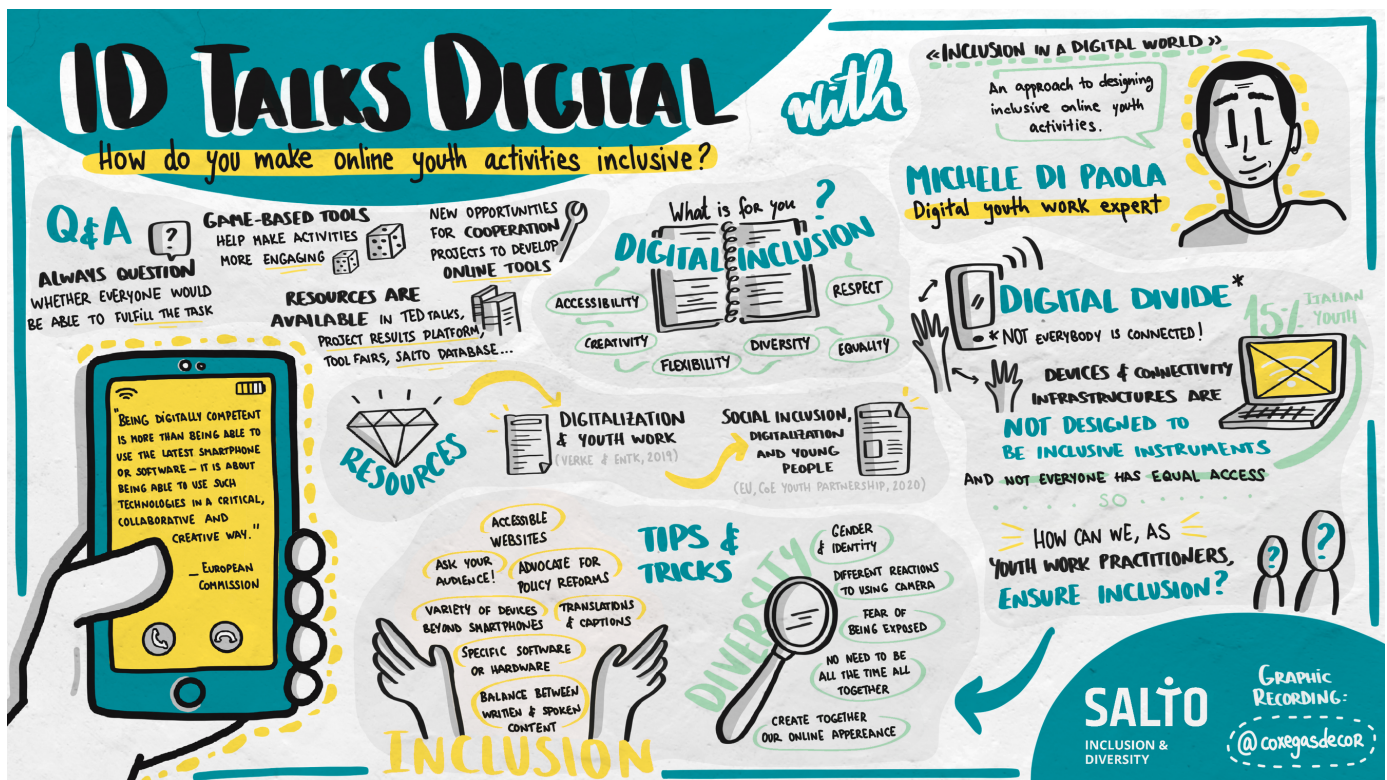 ID TALKS DIGITAL
How do you make online youth activities inclusive?
with
«INCLUSION IN A DIGITAL WORLD»
An approach to designing
inclusive online youth
activities.
MICHELE DI PAOLA
Digital youth work expert
Q&A
?
ALWAYS QUESTION
WHETHER EVERYONE WOULD
BE ABLE TO FULFILL THE TASK
GAME-BASED TOOLS
HELP MAKE ACTIVITIES
MORE ENGAGING
NEW OPPORTUNITIES
FOR COOPERATION
PROJECTS TO DEVELOP
ONLINE TOOLS
RESOURCES ARE
AVAILABLE IN TED TALKS,
PROJECT RESULTS PLATFORM,
TOOL FAIRS, SALTO DATABASE...
What is for you
DIGITAL INCLUSION
?
ACCESSIBILITY
CREATIVITY
FLEXIBILITY
DIVERSITY
EQUALITY
RESPECT
DIGITAL DIVIDE*
*NOT EVERYBODY IS CONNECTED!
15%
ITALIAN
YOUTH
DEVICES & CONNECTIVITY
INFRASTRUCTURES ARE
NOT DESIGNED TO
BE INCLUSIVE INSTRUMENTS
AND NOT EVERYONE HAS EQUAL ACCESS
. . . . . SO . . . . . . .
HOW CAN WE, AS
YOUTH WORK PRACTITIONERS,
ENSURE INCLUSION?
?
?
"BEING DIGITALLY COMPETENT
IS MORE THAN BEING ABLE TO
USE THE LATEST SMARTPHONE
OR SOFTWARE – IT IS ABOUT
BEING ABLE TO USE SUCH
TECHNOLOGIES IN A CRITICAL,
COLLABORATIVE AND
CREATIVE WAY."
_ EUROPEAN
COMMISSION
RESOURCES
DIGITALIZATION
& YOUTH WORK
(VERKE & ENTK, 2019)
SOCIAL INCLUSION,
DIGITALIZATION
AND YOUNG
PEOPLE
(EU, COE YOUTH PARTNERSHIP, 2020)
TIPS &
TRICKS
ACCESSIBLE
WEBSITES
ASK YOUR
AUDIENCE!
ADVOCATE FOR
POLICY REFORMS
VARIETY OF DEVICES
BEYOND SMARTPHONES
TRANSLATIONS
& CAPTIONS
SPECIFIC SOFTWARE
OR HARDWARE
BALANCE BETWEEN
WRITTEN & SPOKEN
CONTENT
INCLUSION
DIVERSITY
GENDER
& IDENTITY
DIFFERENT REACTIONS
TO USING CAMERA
FEAR OF
BEING EXPOSED
NO NEED TO BE
ALL THE TIME ALL
TOGETHER
CREATE TOGETHER
OUR ONLINE APPEREANCE
SALTO
INCLUSION &
DIVERSITY
GRAPHIC
RECORDING:
@coxegasdecor